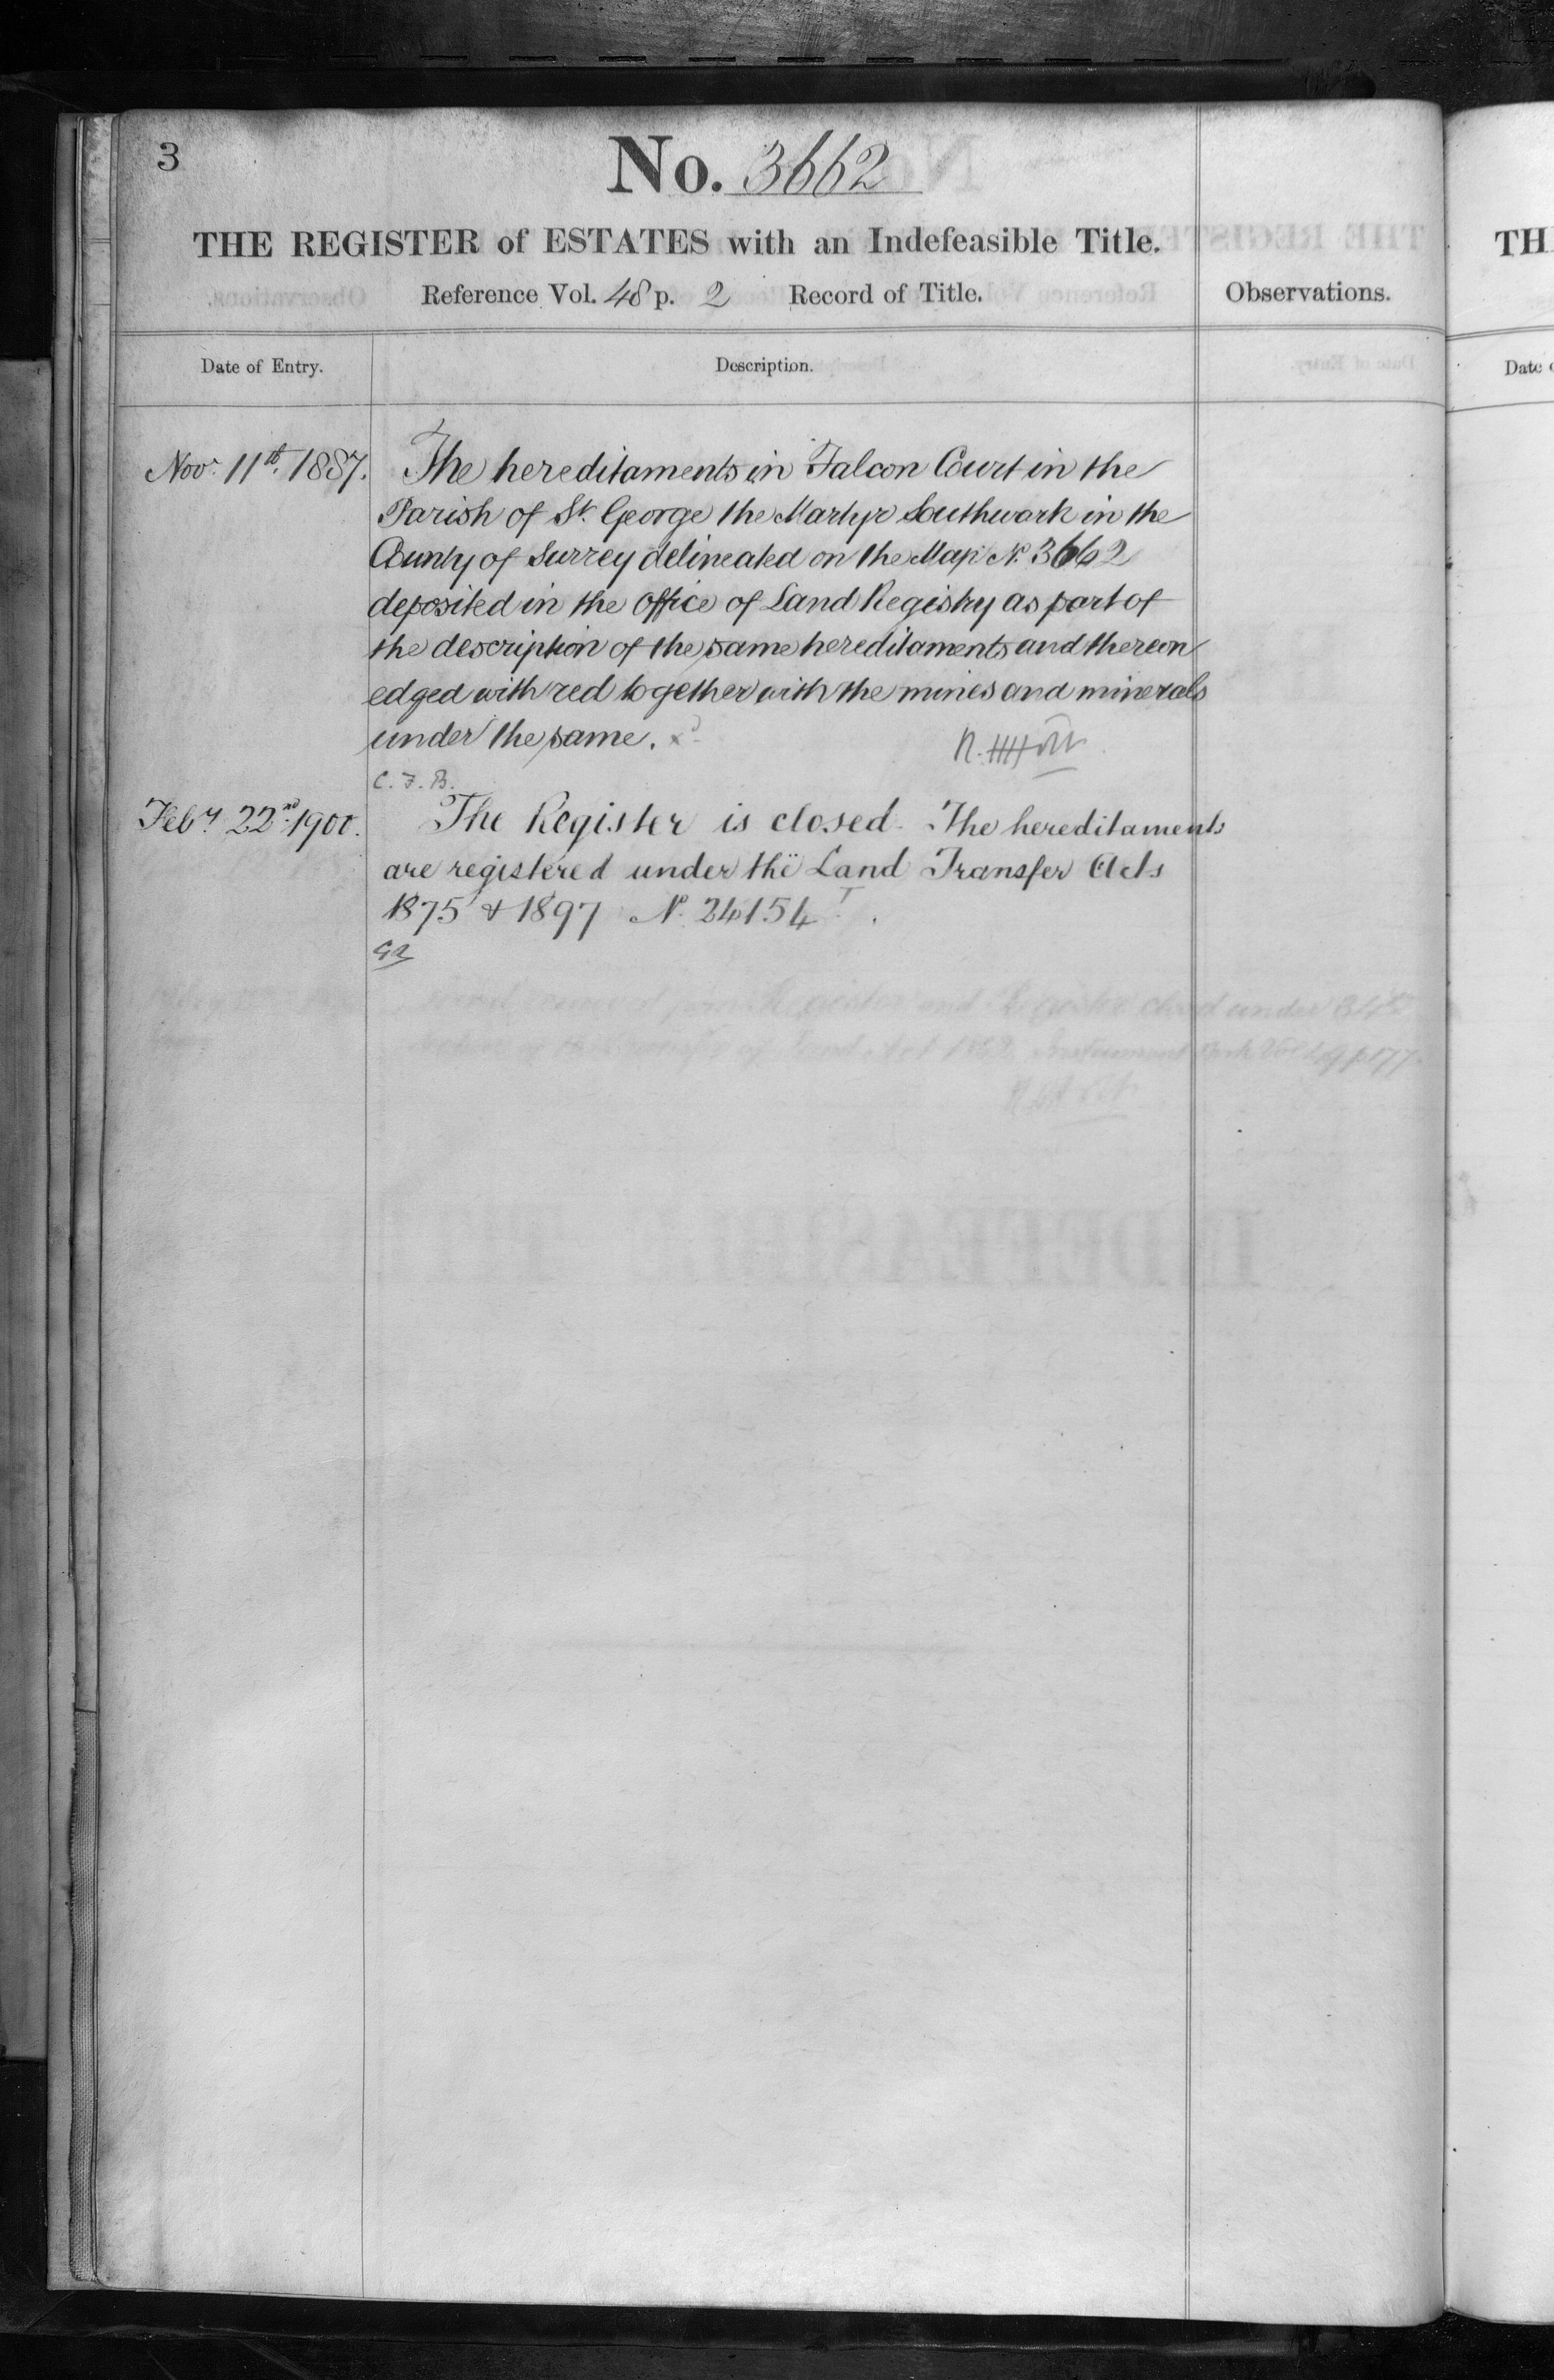 3
No. 3662
THE REGISTER of ESTATES with an Indefeasible Title.
Reference Vol. 48 p. 2 Record of Title.
Observations.
Date of Entry.
Description.
Novr. 11th. 1887.
The hereditaments in Falcon Court in the
Parish of St. George the Martyr Southwark in the
County of Surrey delineated on the Map No. 3662
deposited in the office of Land Registry as part of
the description of the same hereditaments and thereon
edged with red together with the mines and minerals
under the same.
C. F. B.
Feby. 22nd. 1900.
The Register is closed. The hereditaments
are registered under the Land Transfer Acts
1875 & 1897 No. 24154
TH
Date